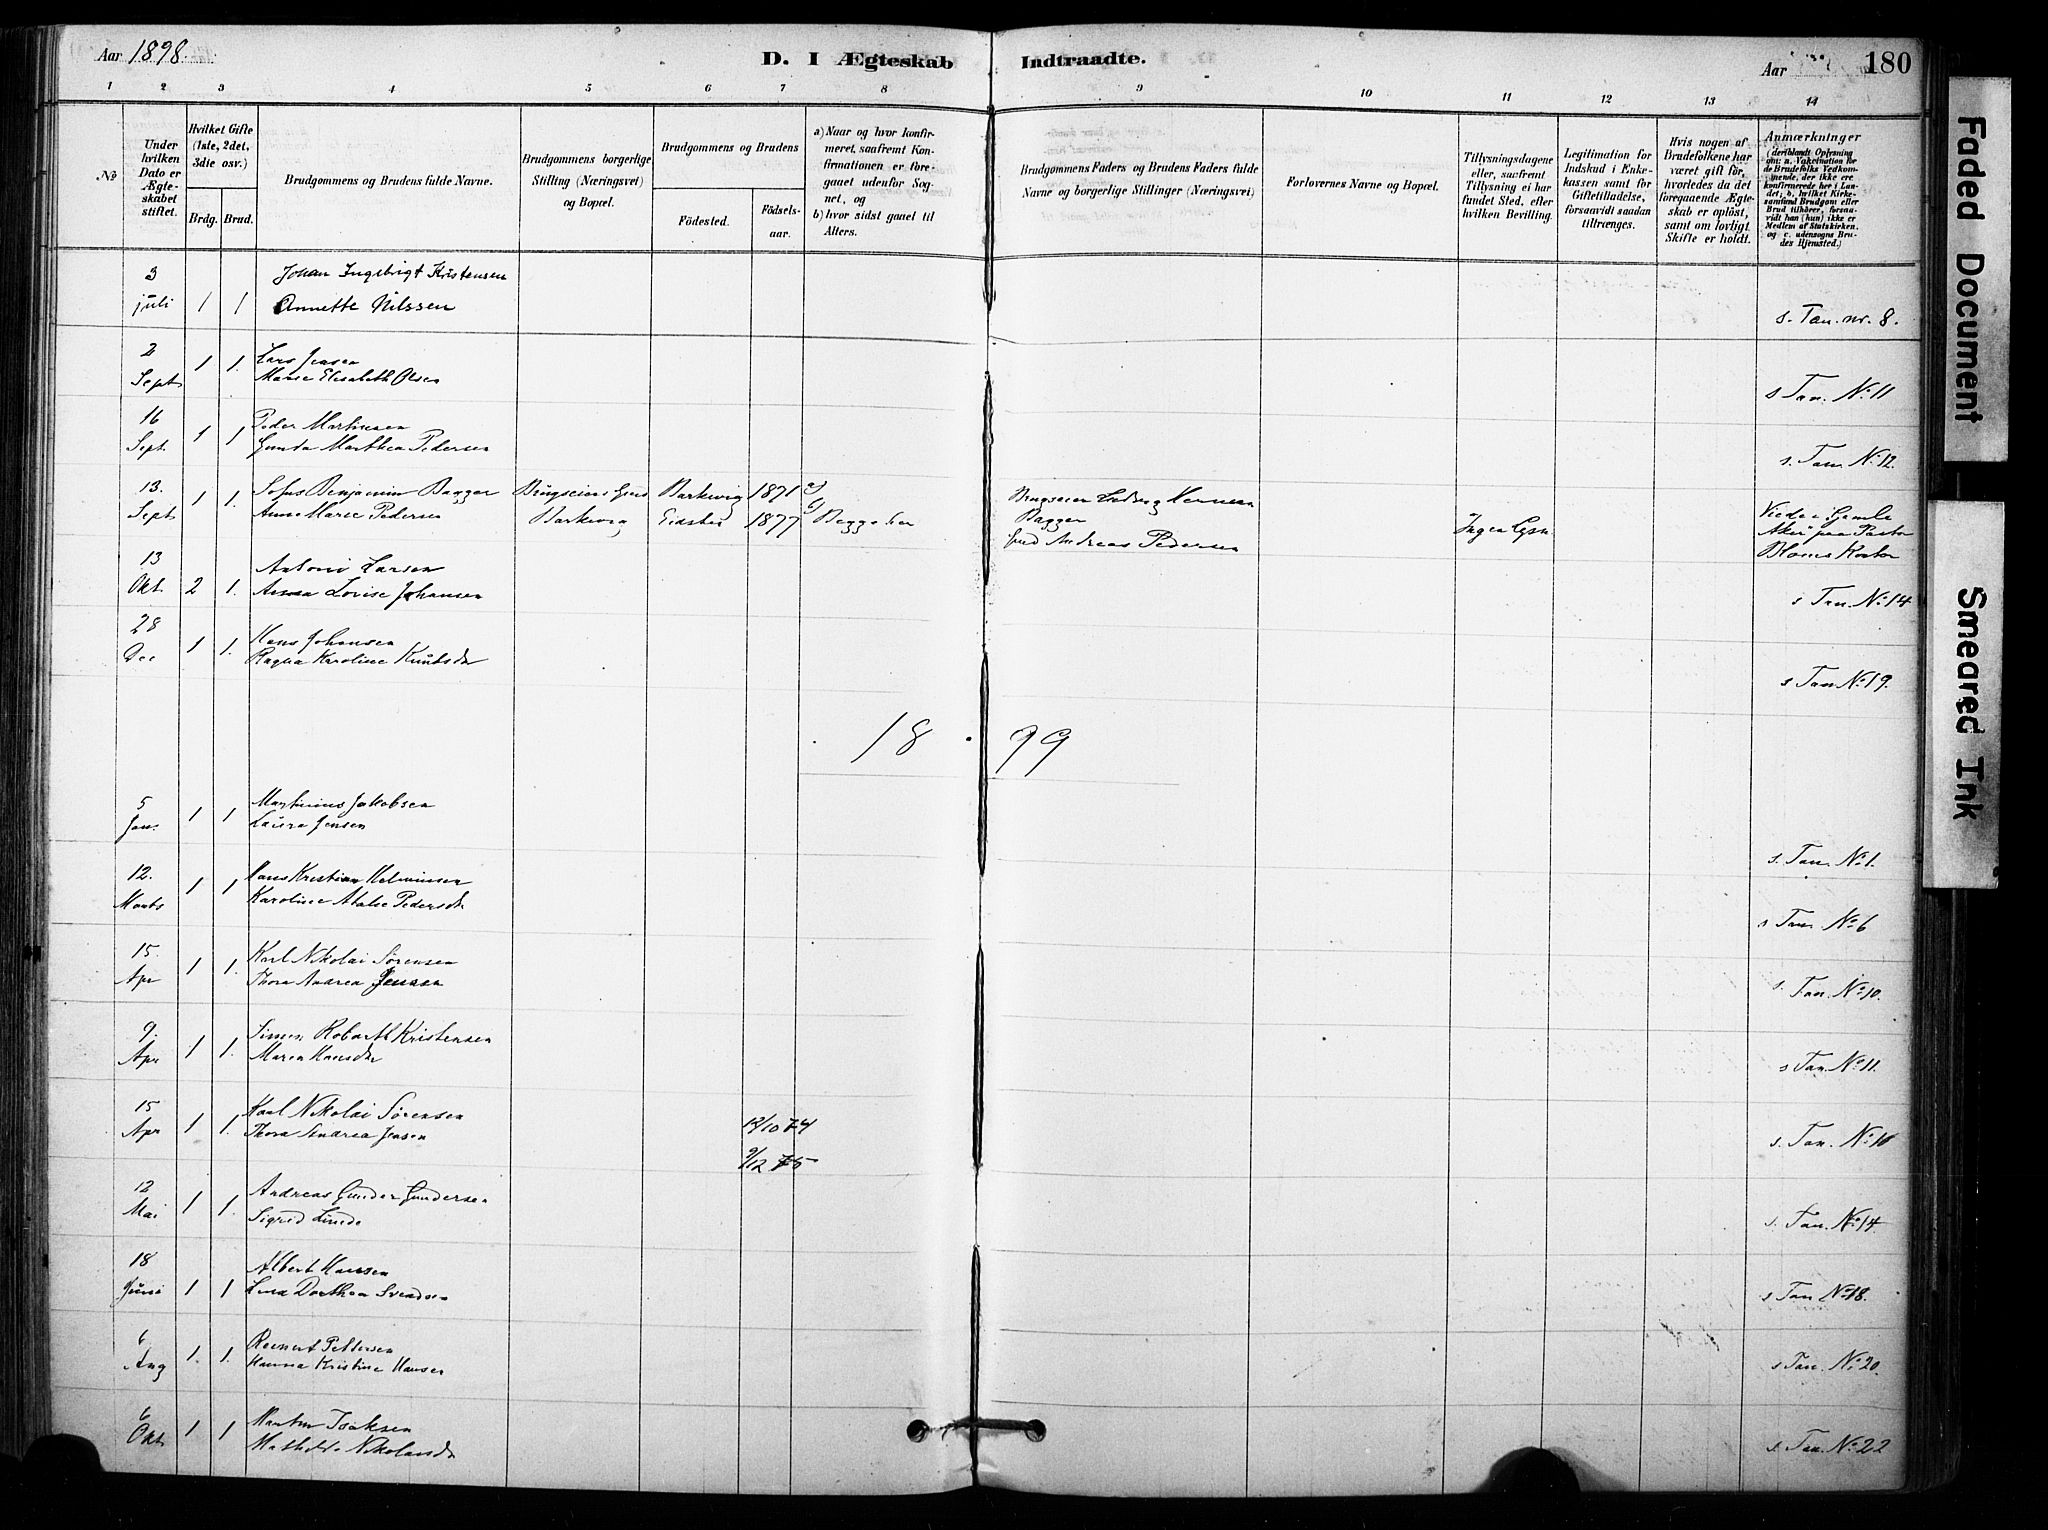 Aar 1898.
D. I Ægteskab Indtraadte.
Aar
180
1 2 3 4 5 6 7 8 9 10 11 12 13 14
No
Under hvilken Dato er Ægteskabet stiftet.
Hvilket Gifte (1ste, 2det, 3die osv.)
Brdg. Brud.
Brudgommens og Brudens fulde Navne.
Brudgommens borgerlige Stilling (Næringsvei) og Bopæl.
Brudgommens og Brudens
Födested.
Födselsaar.
a) Naar og hvor konfirmeret, saafremt Konfirmationen er foregaaet udenfor Sognet, og
b) hvor sidst gaaet til Alters.
Brudgommens Faders og Brudens Faders fulde Navne og borgerlige Stillinger (Næringsvei)
Forlovernes Navne og Bopæl.
Tillysningsdagene eller, saafremt Tillysning ei har fundet Sted, efter hvilken Bevilling.
Legitimation for Indskud i Enkekassen samt for Giftetilladelse, forsaavidt saadan tiltrænges.
Hvis nogen af Brudefolkene har været gift för, hvorledes da det foregaaende Ægteskab er oplöst, samt om lovligt Skifte er holdt.
Anmærkninger
(deriblandt Oplysning om: a. Vakcination for de Brudefolks Vedkommende, der ikke ere konfirmerede her i Landet; b. hvilket Kirkesamfund Brudgom eller Brud tilhörer, forsaavidt han (hun) ikke er Medlem af Statskirken, og c. udensogns Brudes Hjemsted.)
3 juli 1 1 Johan Ingebrigt Kristensen
Annette Nilssen s. Tan. nr. 8.
2 Sept 1 1. Lars Jensen
Marie Elisabeth Olsen s Tan. No 11
16 Sept. 1 1 Peder Martinsen
Gunda Marthea Pedersen s. Tan. No 12
13. Sept 1 1. Sofus Benjamin Bagger Barkevig 1871 a)
Anne Marie Pedersen Barkevig Eidsten 1877 b) Begge her
Bagger
Andreas Pedersen
Ingen Lysn
13 Okt. 2 1. Antoni Larsen
Anna Lovise Johansen s Tan. No 14
28 Dec 1 1. Hans Johansen
Ragna Karoline Knutsdr s Tan. No 19.
18 99
5 Jan. 1 1 Martinius Jakobsen
Laura Jensen s. Tan. No 1.
12. Marts 1 1 Hans Kristian Helminsen
Karoline Atalie Pedersdr s Tan. No 6
15. Apr 1 1. Karl Nikolai Sörensen
Thora Andrea Jensen s. Tan. No 10.
9. Apr 1 1. Simon Robarth Kristensen
Maren Hansdr s Tan. No 11.
15 Apr 1 1. Karl Nikolai Sörensen
Thora Andrea Jensen 12/10 74
9/12 75 s. Tan. No 10
12 Mai 1 1. Andreas Gunder Gundersen
Sigrid Linde s. Tan. No 14
18 Juni 1 1 Albert Hansen
Lina Dorthea Svendsen s Tan No 18.
6 Aug 1. 1. Reinert Pettersen
Hanna Kristine Hansen s Tan. No 20.
6 Okt 1 1 Martin Isaksen
Mathilde Nikolaisdr s. Tan. No 22
Faded Document
Smeared Ink